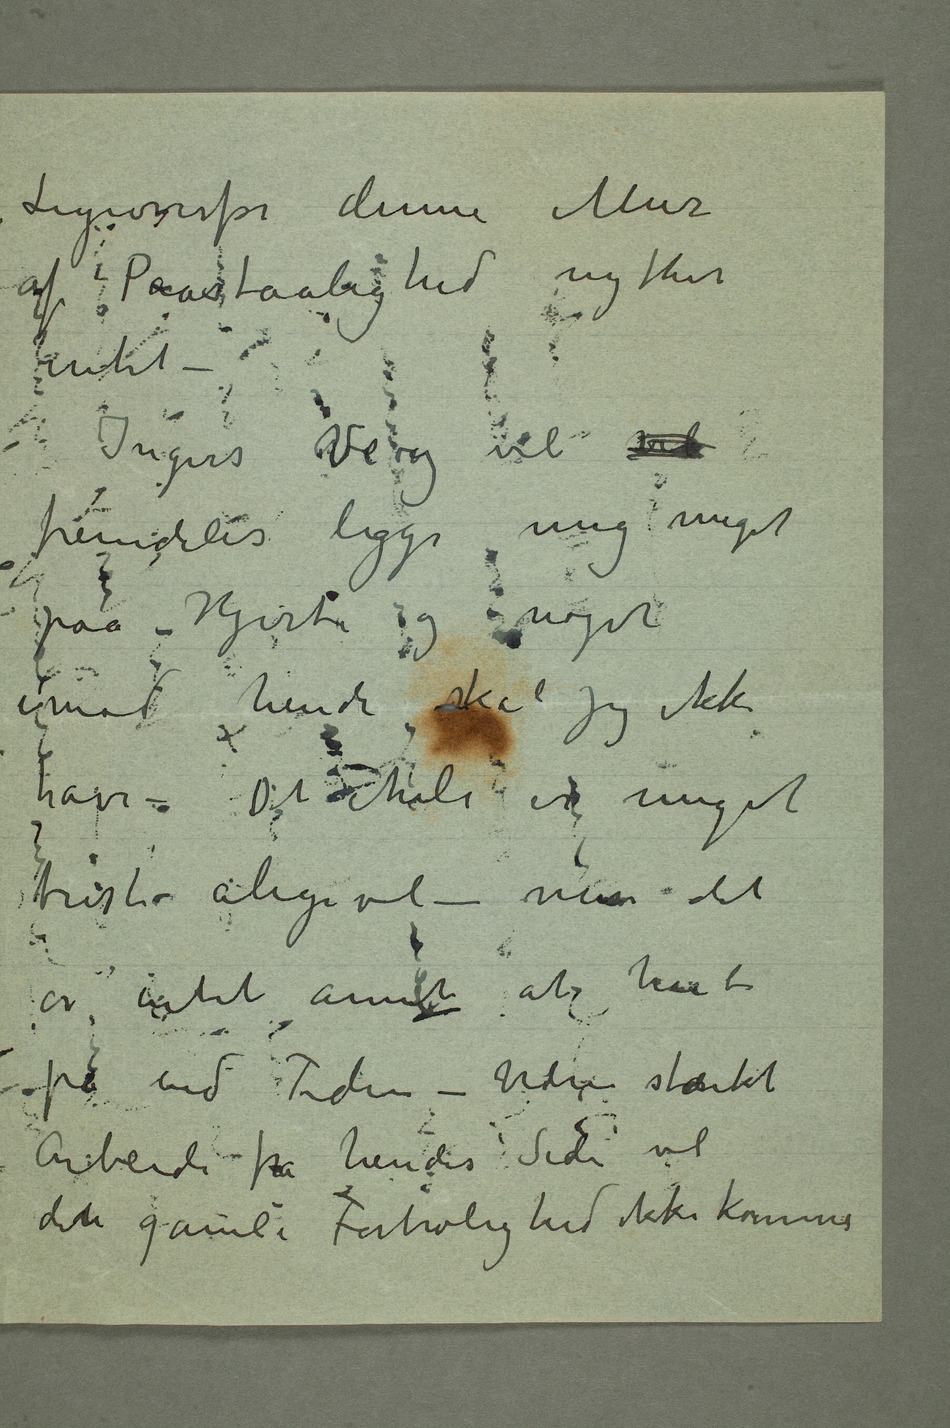 Ligeoverfor denne Mur
af Paastaalighed nytter
intet –
Ingers Ve og vel vil
fremdeles ligge mig meget
paa Hjerte og noget
imod hende skal jeg ikke
have – Det Hele er meget
trist alligevel – men det
er intet annet at hente
på end Tiden – Uden stærkt
Arbeide fra hendes Side vil
den gamle Fortrolighed ikke komme